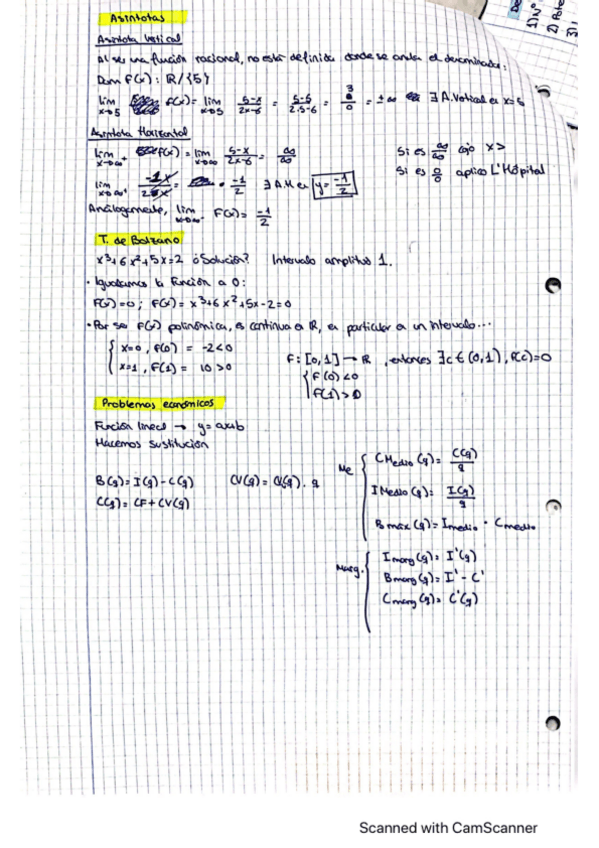 Asíntotas
Asíntota Vertical
Al ser una función racional, no está definida donde se anula el denominador:
Dom F(x): R/{5}
lim x→5 F(x) = lim x→5 5-x/2x-6 = 5-5/2·5-6 = 0 = ±∞ ∃ A.Vertical en x=5
Asíntota Horizontal
lim x→∞+ F(x) = lim x→∞ 5-x/2x-6 = ∞/∞
Si es ∞/∞ cojo x>
lim x→∞+ -1x/2x = -1/2 ∃ A.H en y = -1/2
Si es 0/0 aplico L'Hôpital
Análogamente, lim x→∞- F(x) = -1/2
T. de Bolzano
x³+6x²+5x=2 ¿Solución? Intervalo amplitud 1.
· Igualamos la función a 0:
F(x)=0; F(x) = x³+6x²+5x-2=0
· Por ser F(x) polinómica, es continua en R, en particular en un intervalo...
{ x=0, F(0) = -2<0
x=1, F(1) = 10>0
F: [0,1] → R, entonces ∃c∈(0,1), F(c)=0
{ F(0)<0
F(1)>0
Problemas económicos
Función lineal → y=ax+b
Hacemos sustitución
B(q)= I(q)-C(q) CV(q)= CV(q) · q
C(q)= CF+CV(q)
Me { CMedio(q)= C(q)/q
IMedio(q)= I(q)/q
Bmax(q)= Imedio · Cmedio
Marg. { Imarg(q)= I'(q)
Bmarg(q)= I' - C'
Cmarg(q)= C'(q)
1) Nº
2) Pote
3)
Scanned with CamScanner